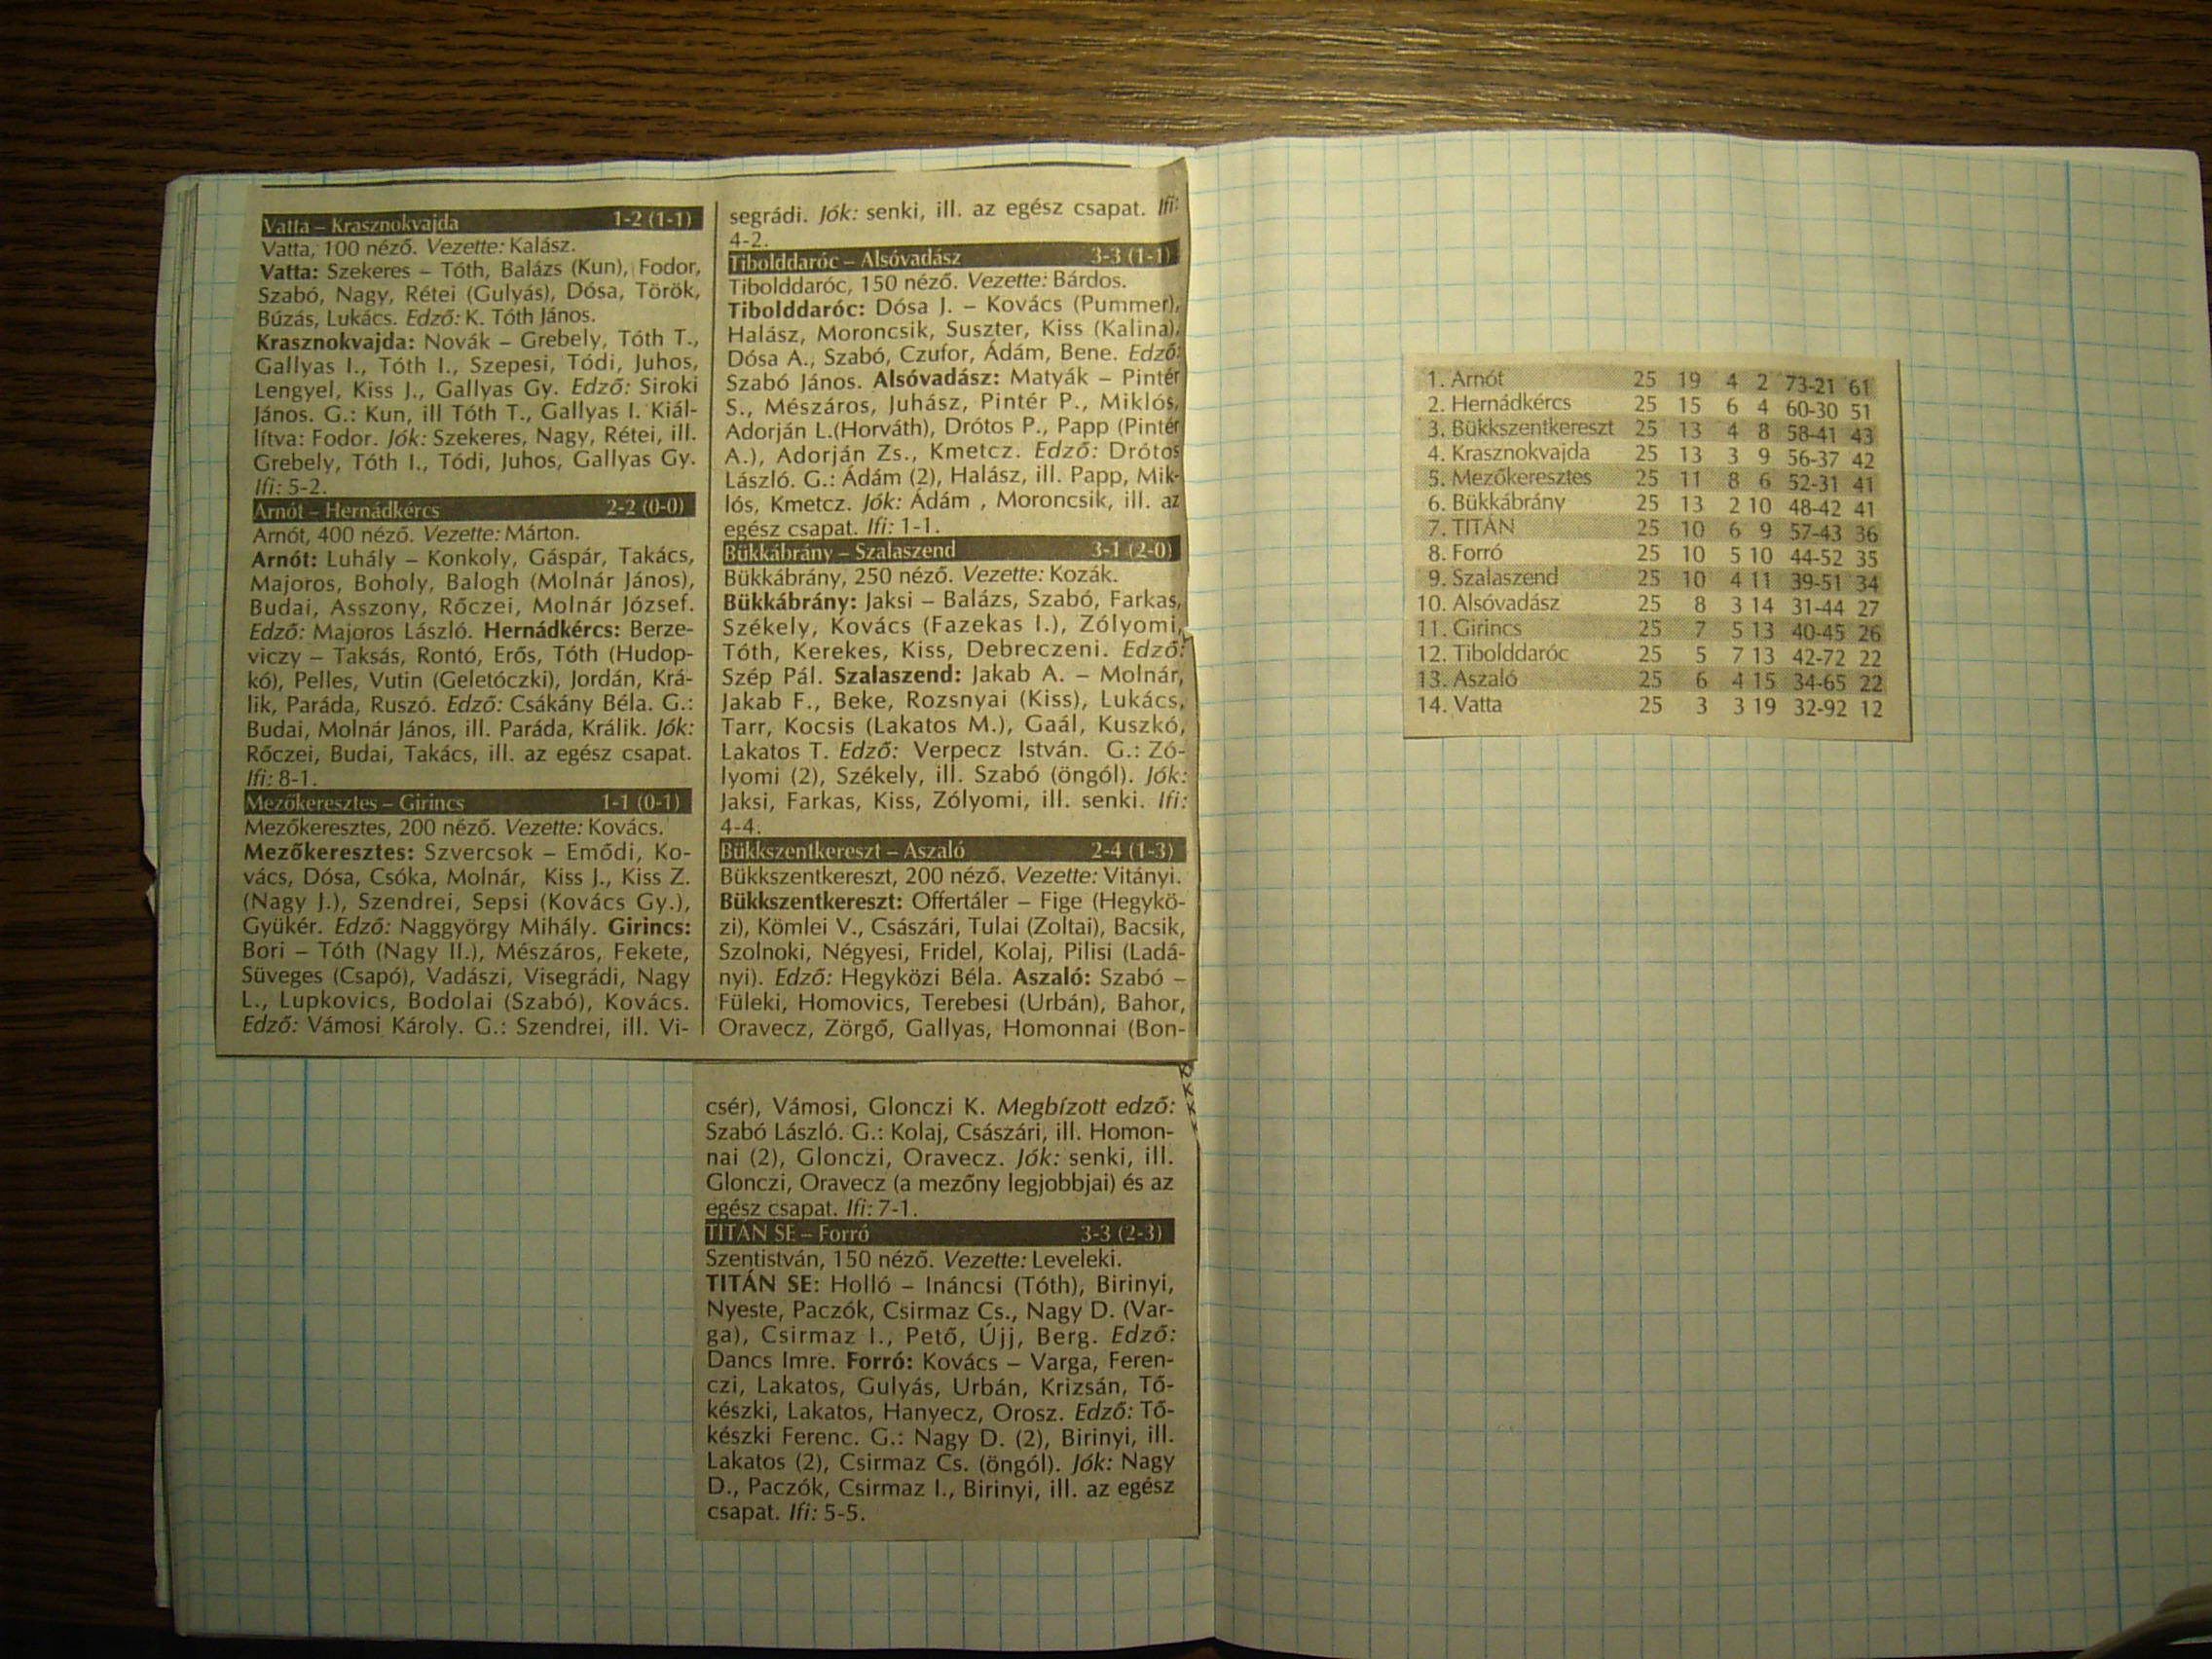 Vatta – Krasznokvajda 1-2 (1-1)
Vatta, 100 néző. Vezette: Kalász.
Vatta: Szekeres – Tóth, Balázs (Kun), Fodor,
Szabó, Nagy, Rétei (Gulyás), Dósa, Török,
Búzás, Lukács. Edző: K. Tóth János.
Krasznokvajda: Novák – Grebely, Tóth T.,
Gallyas I., Tóth I., Szepesi, Tódi, Juhos,
Lengyel, Kiss J., Gallyas Gy. Edző: Siroki
János. G.: Kun, ill Tóth T., Gallyas I. Kiál-
lítva: Fodor. Jók: Szekeres, Nagy, Rétei, ill.
Grebely, Tóth I., Tódi, Juhos, Gallyas Gy.
Ifi: 5-2.
Arnót – Hernádkércs 2-2 (0-0)
Arnót, 400 néző. Vezette: Márton.
Arnót: Luhály – Konkoly, Gáspár, Takács,
Majoros, Boholy, Balogh (Molnár János),
Budai, Asszony, Rőczei, Molnár József.
Edző: Majoros László. Hernádkércs: Berze-
viczy – Taksás, Rontó, Erős, Tóth (Hudop-
kó), Pelles, Vutin (Geletóczki), Jordán, Krá-
lik, Paráda, Ruszó. Edző: Csákány Béla. G.:
Budai, Molnár János, ill. Paráda, Králik. Jók:
Rőczei, Budai, Takács, ill. az egész csapat.
Ifi: 8-1.
Mezőkeresztes – Girincs 1-1 (0-1)
Mezőkeresztes, 200 néző. Vezette: Kovács.
Mezőkeresztes: Szvercsok – Emődi, Ko-
vács, Dósa, Csóka, Molnár, Kiss J., Kiss Z.
(Nagy J.), Szendrei, Sepsi (Kovács Gy.),
Gyükér. Edző: Naggyörgy Mihály. Girincs:
Bori – Tóth (Nagy II.), Mészáros, Fekete,
Süveges (Csapó), Vadászi, Visegrádi, Nagy
L., Lupkovics, Bodolai (Szabó), Kovács.
Edző: Vámosi Károly. G.: Szendrei, ill. Vi-
segrádi. Jók: senki, ill. az egész csapat. Ifi:
4-2.
Tibolddaróc – Alsóvadász 3-3 (1-1)
Tibolddaróc, 150 néző. Vezette: Bárdos.
Tibolddaróc: Dósa J. – Kovács (Pummer),
Halász, Moroncsik, Suszter, Kiss (Kalina),
Dósa A., Szabó, Czufor, Ádám, Bene. Edző:
Szabó János. Alsóvadász: Matyák – Pintér
S., Mészáros, Juhász, Pintér P., Miklós,
Adorján L.(Horváth), Drótos P., Papp (Pintér
A.), Adorján Zs., Kmetcz. Edző: Drótos
László. G.: Ádám (2), Halász, ill. Papp, Mik-
lós, Kmetcz. Jók: Ádám , Moroncsik, ill. az
egész csapat. Ifi: 1-1.
Bükkábrány – Szalaszend 3-1 (2-0)
Bükkábrány, 250 néző. Vezette: Kozák.
Bükkábrány: Jaksi – Balázs, Szabó, Farkas,
Székely, Kovács (Fazekas I.), Zólyomi,
Tóth, Kerekes, Kiss, Debreczeni. Edző:
Szép Pál. Szalaszend: Jakab A. – Molnár,
Jakab F., Beke, Rozsnyai (Kiss), Lukács,
Tarr, Kocsis (Lakatos M.), Gaál, Kuszkó,
Lakatos T. Edző: Verpecz István. G.: Zó-
lyomi (2), Székely, ill. Szabó (öngól). Jók:
Jaksi, Farkas, Kiss, Zólyomi, ill. senki. Ifi:
4-4.
Bükkszentkereszt – Aszaló 2-4 (1-3)
Bükkszentkereszt, 200 néző. Vezette: Vitányi.
Bükkszentkereszt: Offertáler – Fige (Hegykö-
zi), Kömlei V., Császári, Tulai (Zoltai), Bacsik,
Szolnoki, Négyesi, Fridel, Kolaj, Pilisi (Ladá-
nyi). Edző: Hegyközi Béla. Aszaló: Szabó –
Füleki, Homovics, Terebesi (Urbán), Bahor,
Oravecz, Zörgő, Gallyas, Homonnai (Bon-
csér), Vámosi, Glonczi K. Megbízott edző:
Szabó László. G.: Kolaj, Császári, ill. Homon-
nai (2), Glonczi, Oravecz. Jók: senki, ill.
Glonczi, Oravecz (a mezőny legjobbjai) és az
egész csapat. Ifi: 7-1.
TITÁN SE – Forró 3-3 (2-3)
Szentistván, 150 néző. Vezette: Leveleki.
TITÁN SE: Holló – Ináncsi (Tóth), Birinyi,
Nyeste, Paczók, Csirmaz Cs., Nagy D. (Var-
ga), Csirmaz I., Pető, Újj, Berg. Edző:
Dancs Imre. Forró: Kovács – Varga, Feren-
czi, Lakatos, Gulyás, Urbán, Krizsán, Tő-
készki, Lakatos, Hanyecz, Orosz. Edző: Tő-
készki Ferenc. G.: Nagy D. (2), Birinyi, ill.
Lakatos (2), Csirmaz Cs. (öngól). Jók: Nagy
D., Paczók, Csirmaz I., Birinyi, ill. az egész
csapat. Ifi: 5-5.
1. Arnót 25 19 4 2 73-21 61
2. Hernádkércs 25 15 6 4 60-30 51
3. Bükkszentkereszt 25 13 4 8 58-41 43
4. Krasznokvajda 25 13 3 9 56-37 42
5. Mezőkeresztes 25 11 8 6 52-31 41
6. Bükkábrány 25 13 2 10 48-42 41
7. TITÁN 25 10 6 9 57-43 36
8. Forró 25 10 5 10 44-52 35
9. Szalaszend 25 10 4 11 39-51 34
10. Alsóvadász 25 8 3 14 31-44 27
11. Girincs 25 7 5 13 40-45 26
12. Tibolddaróc 25 5 7 13 42-72 22
13. Aszaló 25 6 4 15 34-65 22
14. Vatta 25 3 3 19 32-92 12